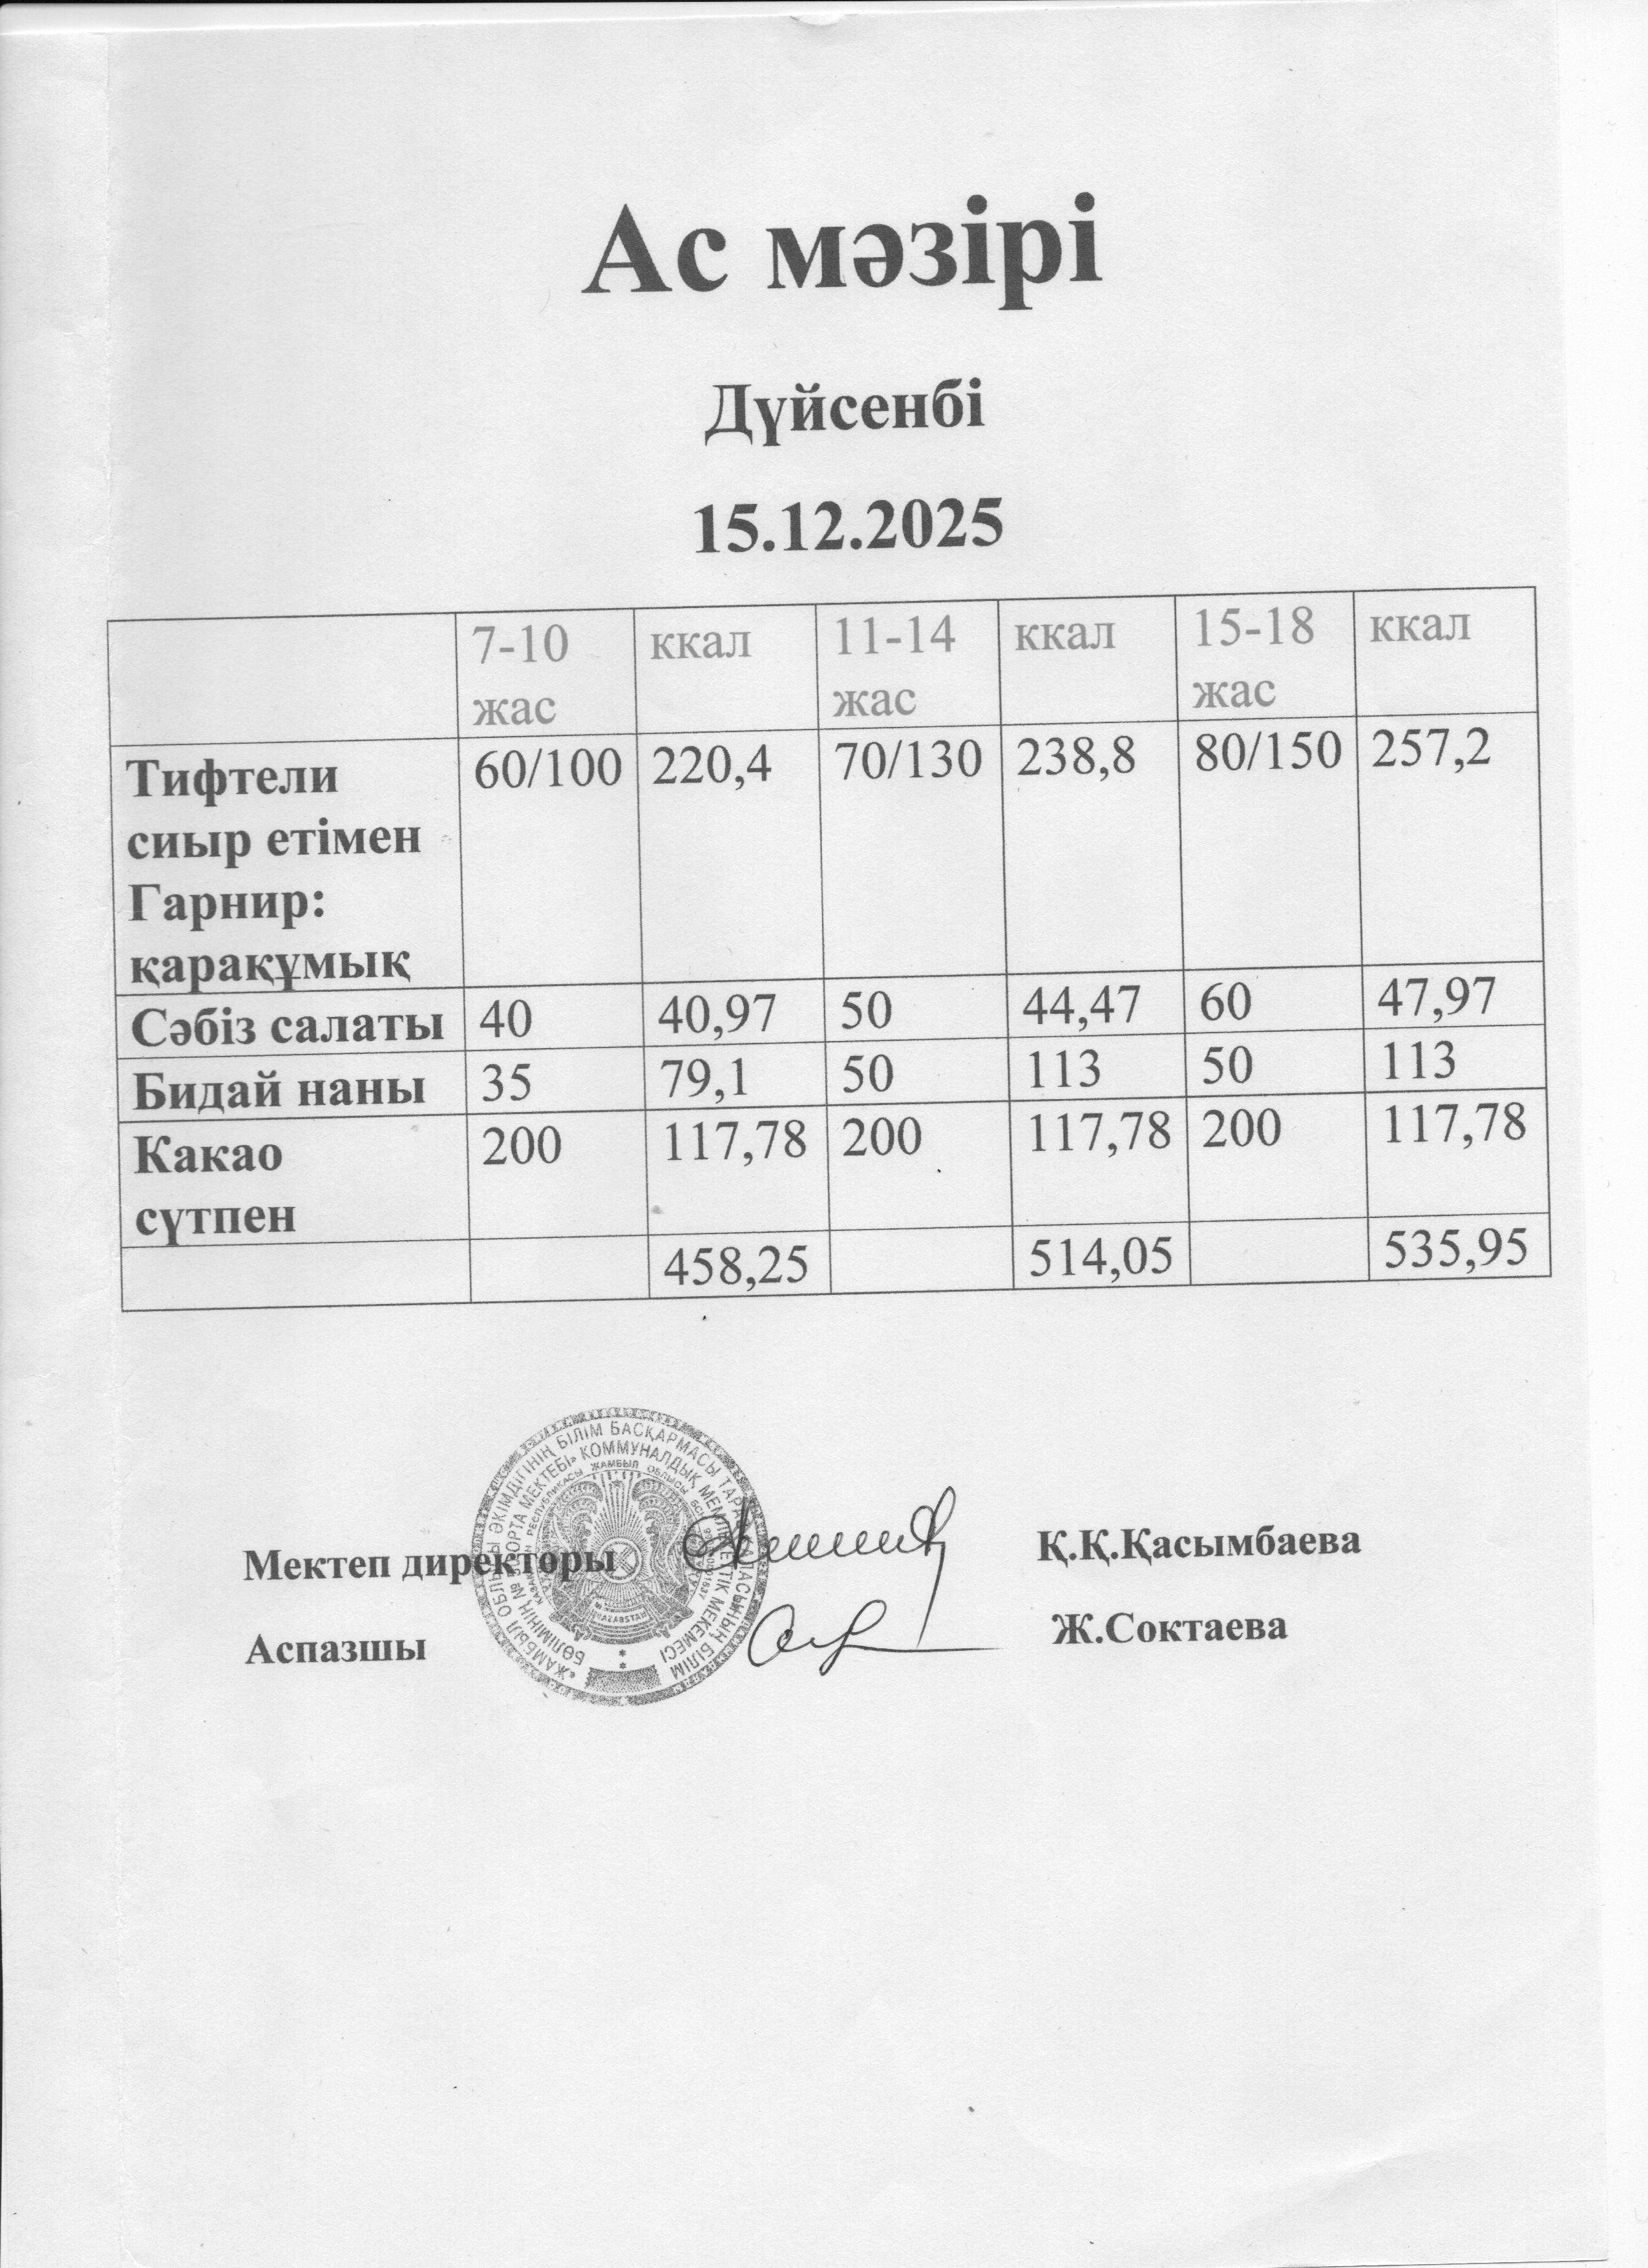 Ас мәзірі
Дүйсенбі
15.12.2025
7-10 жас ккал 11-14 жас ккал 15-18 жас ккал
Тифтели сиыр етімен Гарнир: қарақұмық 60/100 220,4 70/130 238,8 80/150 257,2
Сәбіз салаты 40 40,97 50 44,47 60 47,97
Бидай наны 35 79,1 50 113 50 113
Какао сүтпен 200 117,78 200 117,78 200 117,78
458,25 514,05 535,95
Мектеп директоры Қ.Қ.Қасымбаева
Аспазшы Ж.Соктаева
«ЖАМБЫЛ ОБЛЫСЫ ӘКІМДІГІНІҢ БІЛІМ БАСҚАРМАСЫ ТАРАЗ ҚАЛАСЫНЫҢ БІЛІМ
БӨЛІМІНІҢ № ОРТА МЕКТЕБІ» КОММУНАЛДЫҚ МЕМЛЕКЕТТІК МЕКЕМЕСІ
ҚАЗАҚСТАН РЕСПУБЛИКАСЫ ЖАМБЫЛ ОБЛЫСЫ
QAZAQSTAN